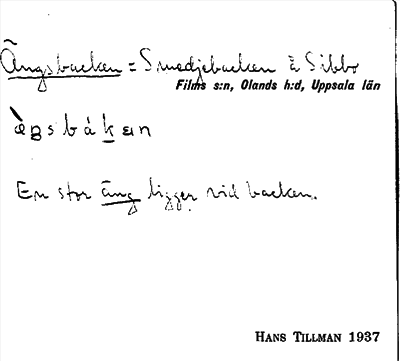 Ängsbacken = Smedjebacken å Sibbo
Films s:n, Olands h:d, Uppsala län
En stor äng ligger vid backen.
HANS TILLMAN 1937